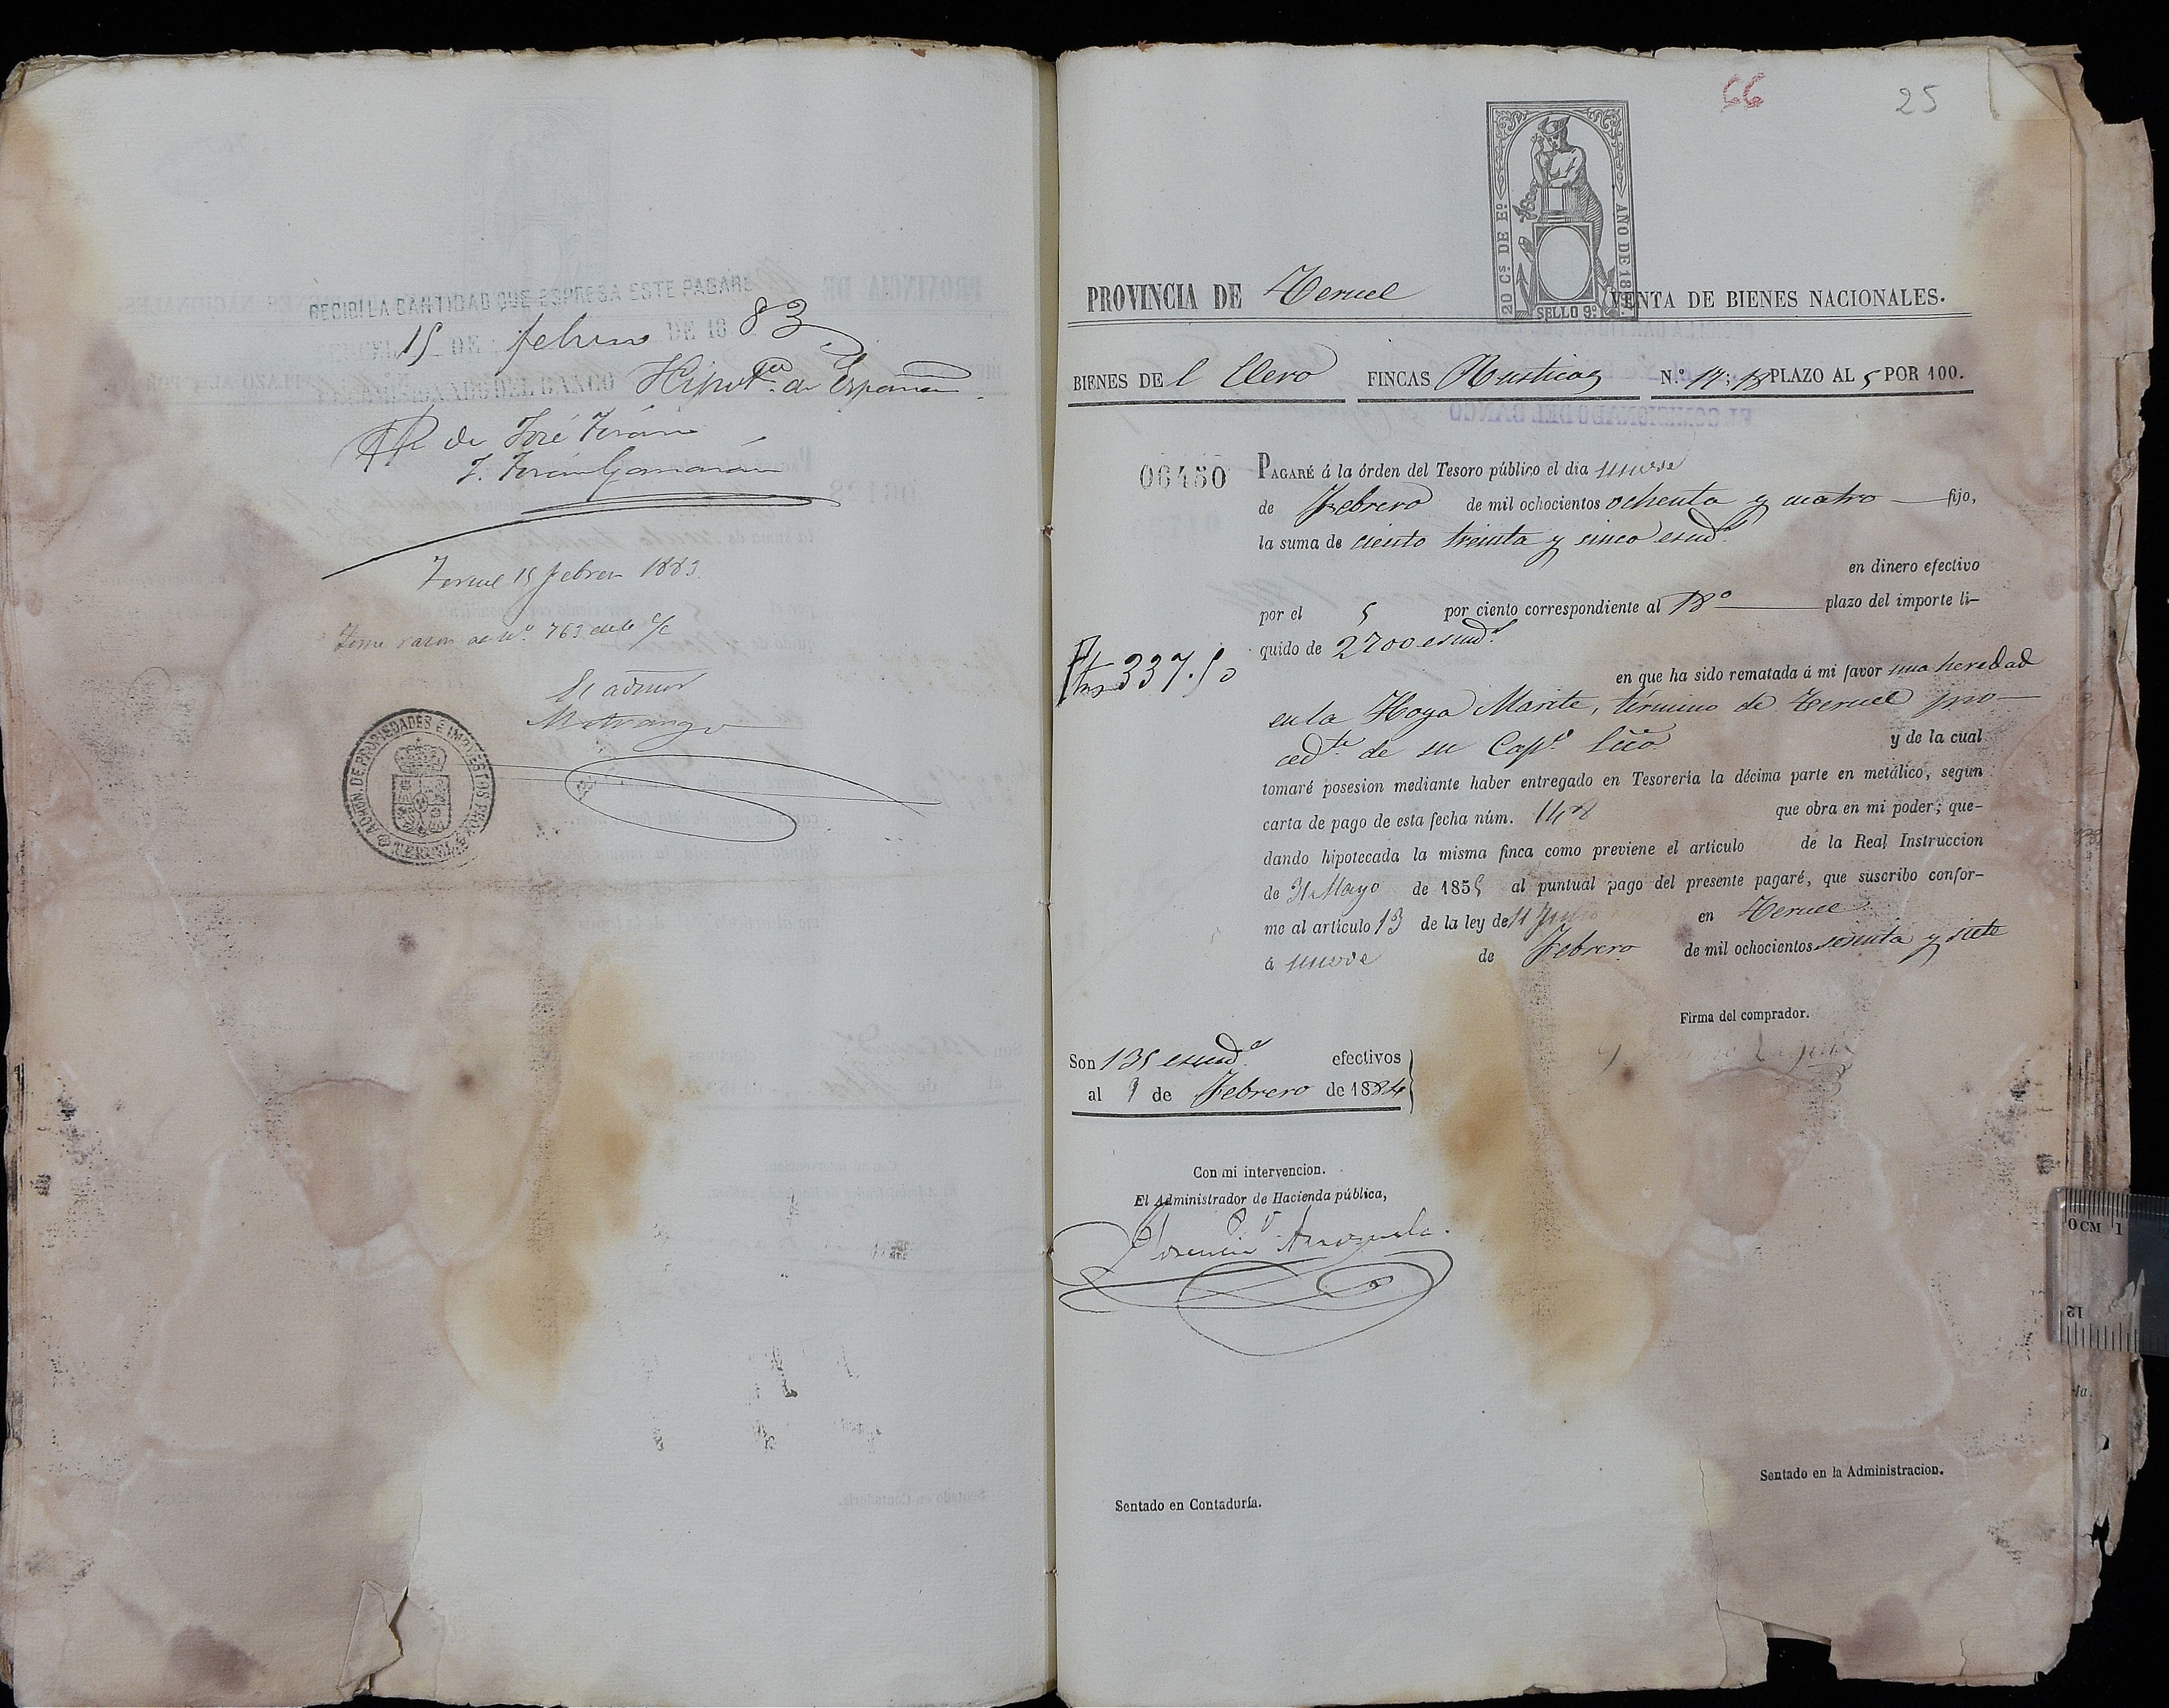 RECIBÍ LA CANTIDAD QUE ESPRESA ESTE PAGARÉ
15 DE febrero DE 18 83
DEL BANCO Hipotco. de España
PP de José Terán
Teruel 15 febrero 1883
Tomé razon al nº. 763 de
El admor
ADMON DE PROPIEDADES É IMPUESTOS TERUEL
66
25
20 Cs DE Eº
AÑO DE 18
SELLO 9º
PROVINCIA DE Teruel VENTA DE BIENES NACIONALES.
BIENES DE l Clero FINCAS Rusticas N.º 17; 18 PLAZO AL 5 POR 100.
06450
PAGARÉ á la órden del Tesoro público el dia nueve
de Febrero de mil ochocientos ochenta y cuatro fijo,
la suma de ciento treinta y cinco escud.s
en dinero efectivo
por el 5 por ciento correspondiente al 18º plazo del importe lí-
quido de 2700 escud.s
Ptas 337.50
en que ha sido rematada á mi favor una heredad
en la Hoya Marite, término de Teruel pro-
ced.te de su Cap.l
y de la cual
tomaré posesion mediante haber entregado en Tesorería la décima parte en metálico, segun
carta de pago de esta fecha núm. 148 que obra en mi poder; que-
dando hipotecada la misma finca como previene el artículo de la Real Instruccion
de 31 Mayo de 1855 al puntual pago del presente pagaré, que suscribo confor-
me al artículo 13 de la ley de 11 Julio en Teruel
a nueve de Febrero de mil ochocientos sesenta y siete
Firma del comprador.
Son 135 escud.s efectivos
al 9 de Febrero de 1884
Con mi intervencion.
El Administrador de Hacienda pública,
Sentado en la Administracion.
Sentado en Contaduría.
0CM 1
12